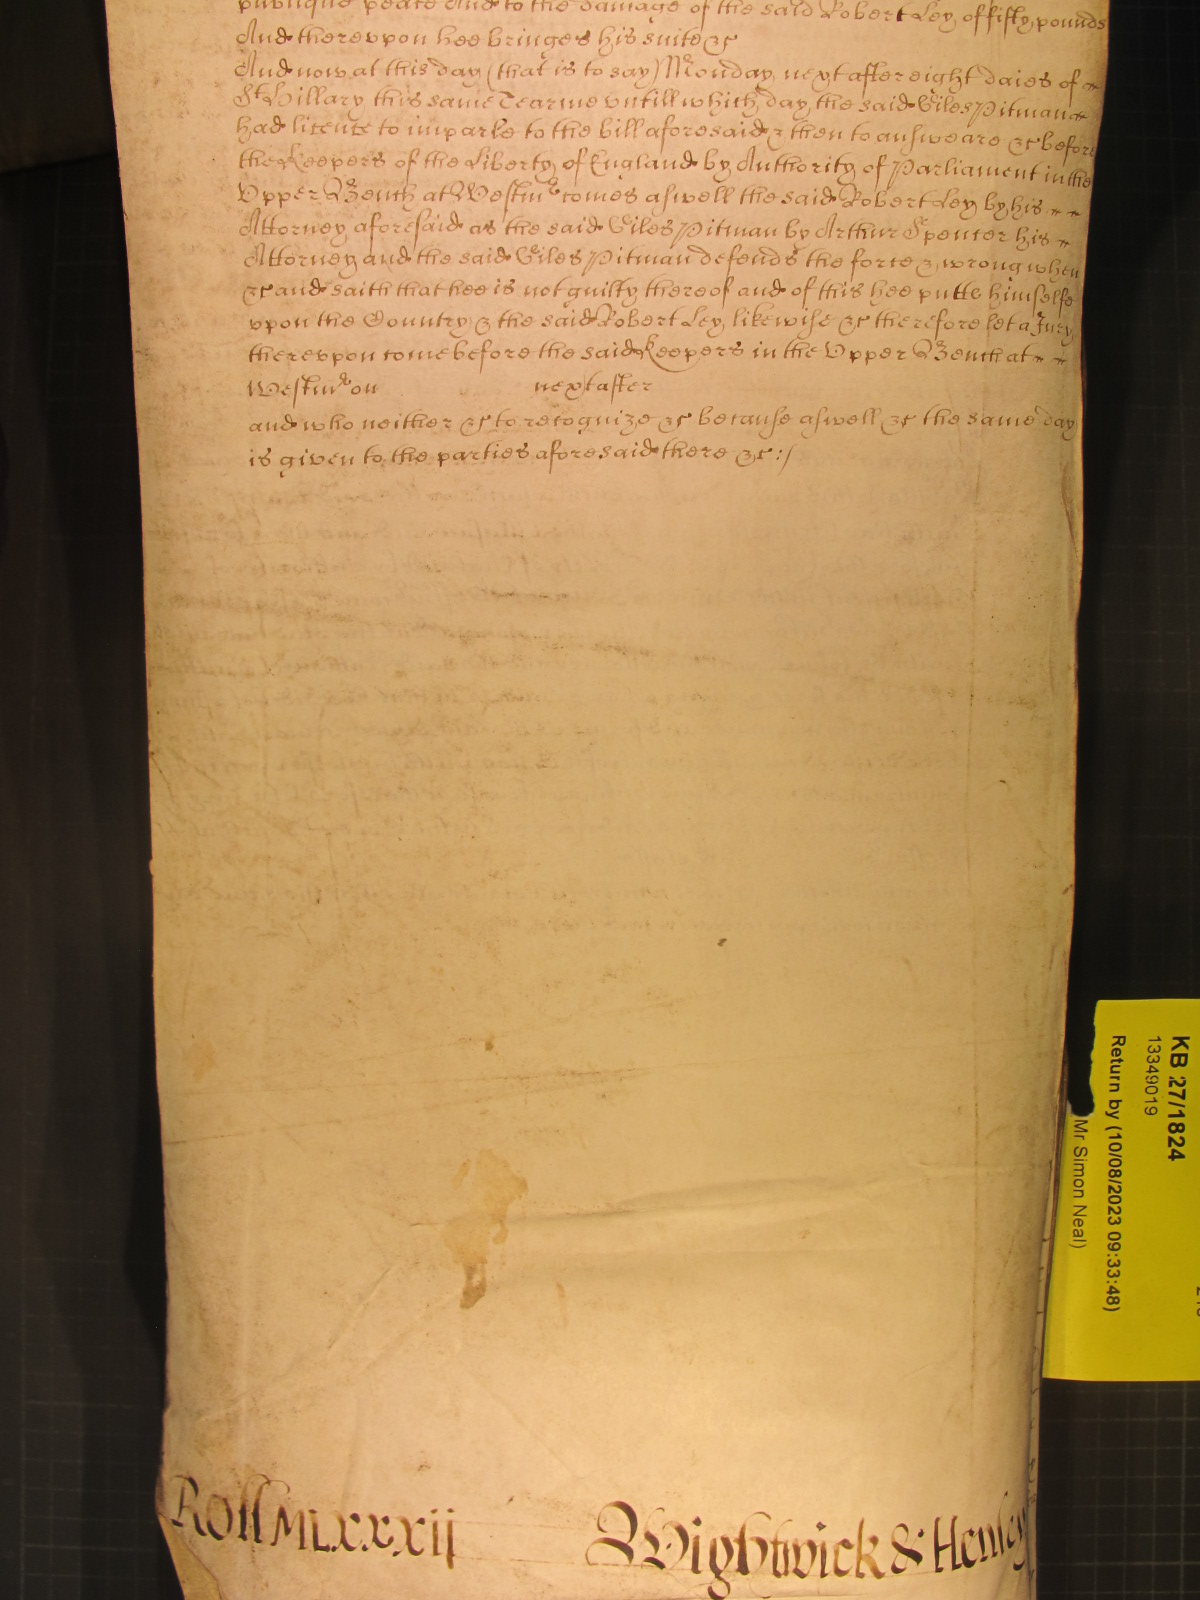 publique peace And to the damage of the said Robert Ley of fifty pounds
And therevpon hee bringes his suite &c
And now at this day (that is to say) Monday next after eight daies of
St Hillary this same Tearme vntill which day the said Giles Pitman
had licence to imparle to the bill aforesaid & then to answeare &c before
the Keepers of the Liberty of England by Authority of Parliament in the
Vpper Bench at Westmr comes aswell the said Robert Ley by his
Attorney aforesaid as the said Giles Pitman by Arthur Spencer his
Attorney and the said Giles Pitman defends the force & wrong when
&c and saith that hee is not guilty thereof and of this hee putts himselfe
vpon the Country & the said Robert Ley likewise &c therefore let a Jury
therevpon come before the said Keepers in the Vpper Bench at
Westmr on next after
and who neither &c to recognize &c because aswell &c the same day
is given to the parties aforesaid there &c :/
KB 27/1824
13349019
Return by (10/08/2023 09:33:48)
Mr Simon Neal)
Roll MLXXXii Wightwick & Henley